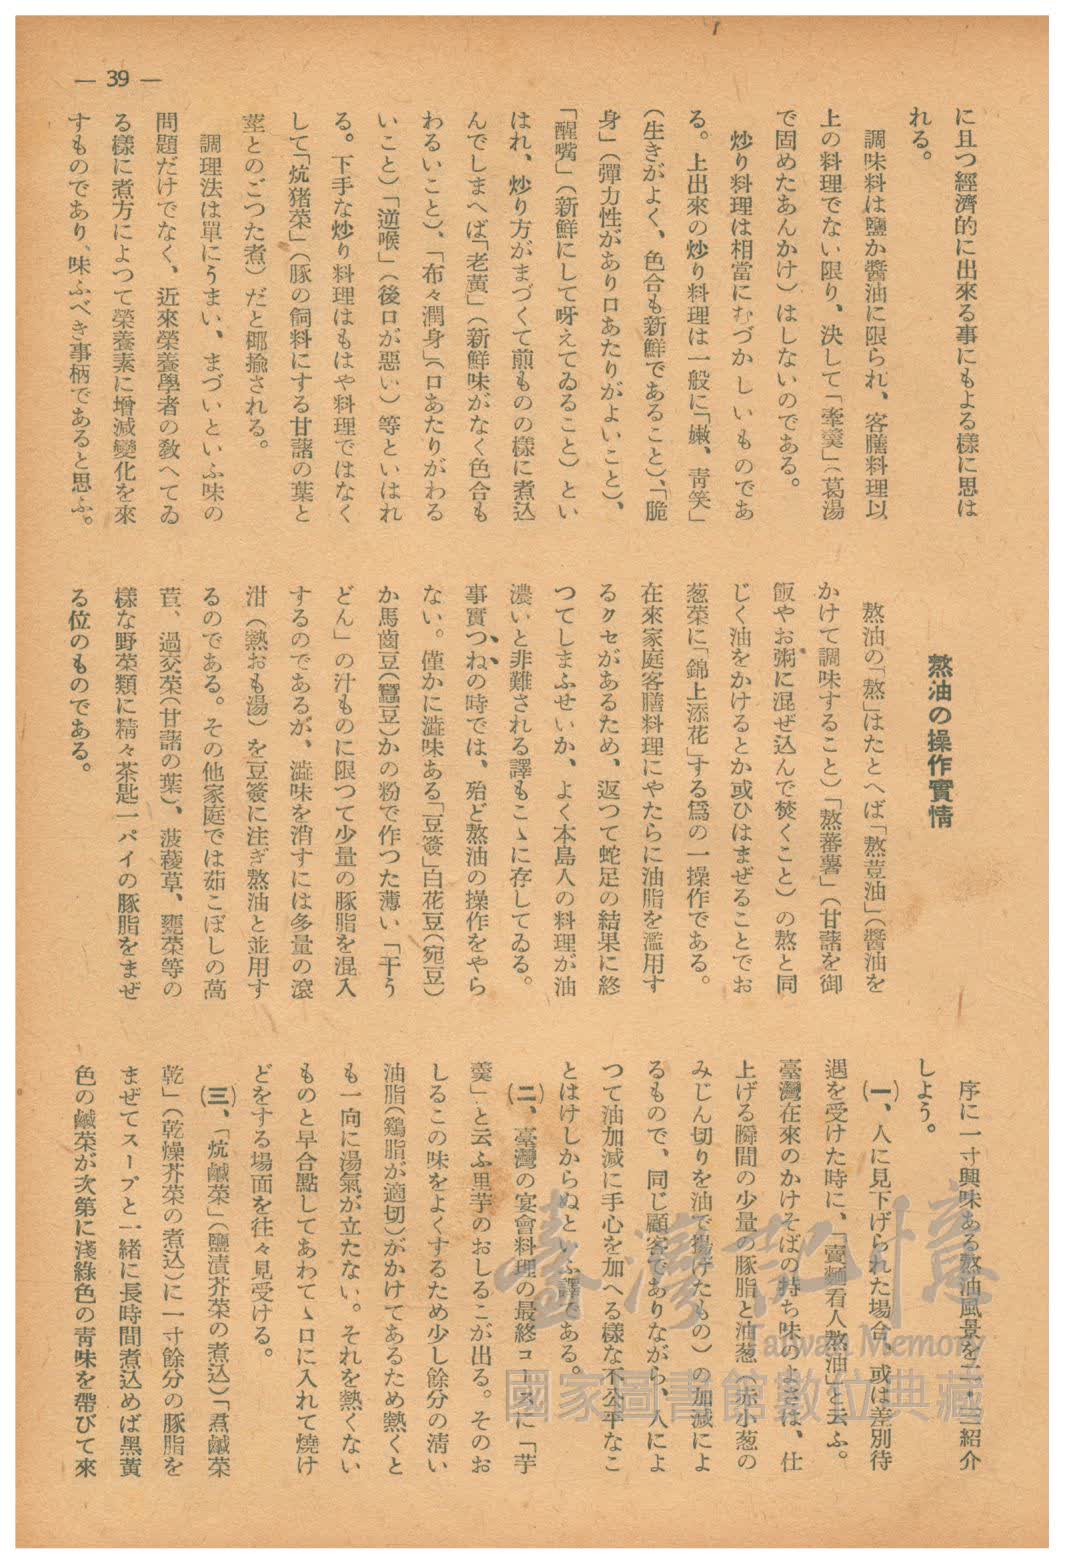 — 39 —
に且つ經濟的に出來る事にもよる樣に思は
れる。
調味料は鹽か醬油に限られ、客膳料理以
上の料理でない限り、決して「牽羹」（葛湯
で固めたあんかけ）はしないのである。
炒り料理は相當にむづかしいものであ
る。上出來の炒り料理は一般に「嫩、靑笑」
（生きがよく、色合も新鮮であること）、「脆
身」（彈力性があり口あたりがよいこと）、
「醒嘴」（新鮮にして呀えてゐること）とい
はれ、炒り方がまづくて煎ものの樣に煮込
んでしまへば「老黃」（新鮮味がなく色合も
わるいこと）、「布々潤身」（口あたりがわる
いこと）「逆喉」（後口が惡い）等といはれ
る。下手な炒り料理はもはや料理ではなく
して「炕猪菜」（豚の飼料にする甘藷の葉と
莖とのごつた煮）だと揶揄される。
調理法は單にうまい、まづいといふ味の
問題だけでなく、近來榮養學者の敎へてゐ
る樣に煮方によつて榮養素に增減變化を來
すものであり、味ふべき事柄であると思ふ。
熬油の操作實情
熬油の「熬」はたとへば「熬荳油」（醬油を
かけて調味すること）「熬蕃薯」（甘藷を御
飯やお粥に混ぜ込んで焚くこと）の熬と同
じく油をかけるとか或ひはまぜることでお
葱菜に「錦上添花」する爲の一操作である。
在來家庭客膳料理にやたらに油脂を濫用す
るクセがあるため、返つて蛇足の結果に終
つてしまふせいか、よく本島人の料理が油
濃いと非難される譯もこゝに存してゐる。
事實つねの時では、殆ど熬油の操作をやら
ない。僅かに澁味ある「豆簽」白花豆（宛豆）
か馬齒豆（蠶豆）かの粉で作つた薄い「干う
どん」の汁ものに限つて少量の豚脂を混入
するのであるが、澁味を消すには多量の滾
泔（熱おも湯）を豆簽に注ぎ熬油と並用す
るのである。その他家庭では茹こぼしの萵
苣、過交菜（甘藷の葉）、菠薐草、甕菜等の
樣な野菜類に精々茶匙一パイの豚脂をまぜ
る位のものである。
序に一寸興味ある熬油風景を二・三紹介
しよう。
（一）、人に見下げられた場合、或は差別待
遇を受けた時に、「賣麵看人熬油」と云ふ。
臺灣在來のかけそばの持ち味のよさは、仕
上げる瞬間の少量の豚脂と油葱（赤小葱の
みじん切りを油で揚げたもの）の加減によ
るもので、同じ顧客でありながら、人によ
つて油加減に手心を加へる樣な不公平なこ
とはけしからぬといふ譯である。
（二）、臺灣の宴會料理の最終コースに「芋
羹」と云ふ里芋のおしるこが出る。そのお
しるこの味をよくするため少し餘分の淸い
油脂（鷄脂が適切）がかけてあるため熱くと
も一向に湯氣が立たない。それを熱くない
ものと早合點してあわてゝ口に入れて燒け
どをする場面を往々見受ける。
（三）、「炕鹹菜」（鹽漬芥菜の煮込）「煮鹹菜
乾」（乾燥芥菜の煮込）に一寸餘分の豚脂を
まぜてスープと一緖に長時間煮込めば黑黃
色の鹹菜が次第に淺綠色の靑味を帶びて來
臺灣記憶
Taiwan Memory
國家圖書館數位典藏